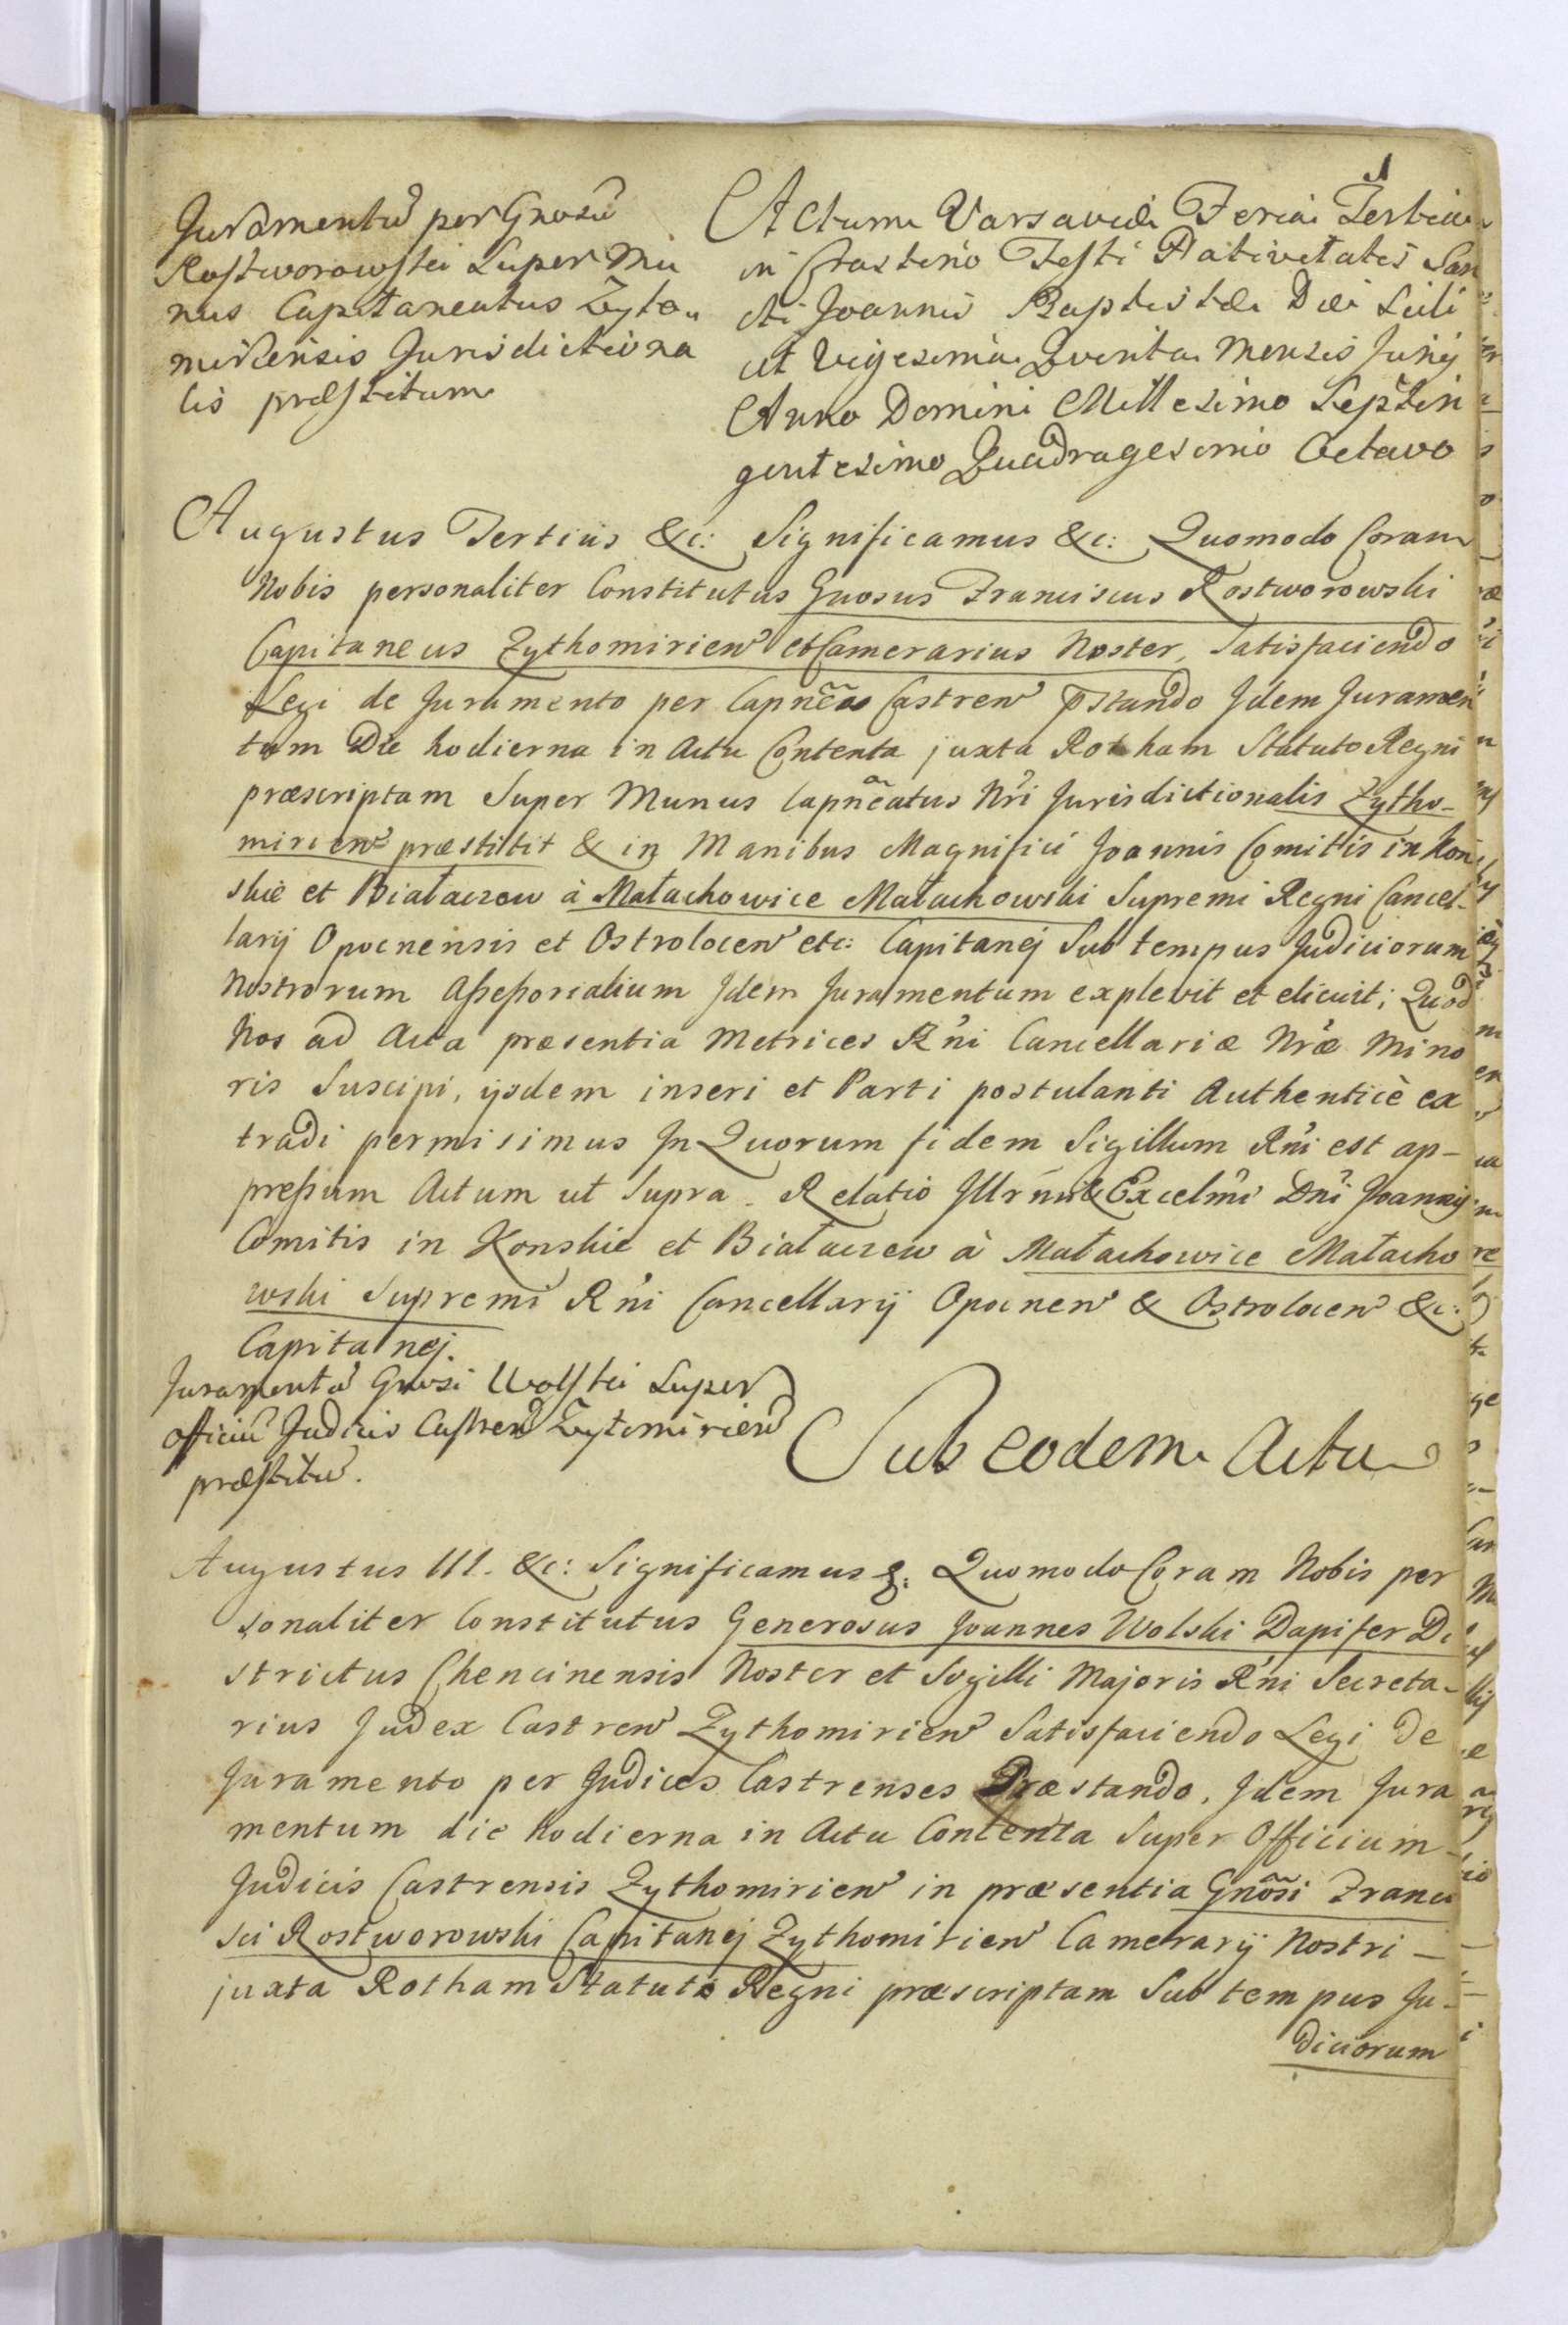 1
Juramentũ per Gnosũ
Rostworowski Super Mu
nus Capitaneatus Zyto„
miriensis Jurisdictiona
lis præstitum
Actum Varsaviæ Feria Tertia
in Crastino Festi Nativitatis San
cti Joannis Baptistæ Die Scili
cet Vigesima Quinta Mensis Junij
Anno Domini Millesimo Septin
gentesimo Quadragesimo Octavo
Augustus Tertius &c: Significamus &c: Quomodo Coram
Nobis personaliter Constitutus Gnosus Franciscus Rostworowski
Capitaneus Zythomirien̄ et Camerarius Noster, Satisfaciendo
Legi de Juramento per Capnẽos Castren̄ p̄stando Idem Juramen
tum Die hodierna in Actu Contenta juxta Rotham Statuto Regni
præscriptam Super Munus Capnẽatus Nr̃i Jurisdictionalis Zytho-
mirien̄ præstitit & in Manibus Magnifici Joannis Comitis in Kon
skie et Białaczow à Małachowice Małachowski Supremi Regni Cancel-
larij Opocnensis et Ostrolocen̄ etc: Capitanej Sub tempus Judiciorum
Nostrorum Assessorialium Idem Juramentum explevit et elicuit; Quod
Nos ad Acta præsentia Metrices R̃ni Cancellariæ Nr̃æ Mino
ris Suscipi, ijsdem inseri et Parti postulanti Authenticè ex
tradi permisimus In Quorum fidem Sigillum R̃ni est ap-
pressum Actum ut Supra. Relatio Illr̃mi & Excelm̃i Dñi Joannis
Comitis in Konskie et Białaczew à Małachowice Małacho
wski Supremi R̃ni Cancellarij Opocnen̄ & Ostrolocen̄ &c:
Capitanej.
Juramentũ Gnosi Wolski Super
Officiũ Judicis Castren̄ Zytomirien̄
præstitũ.
Sub eodem Actu
Augustus III. &c: Significamus &: Quomodo Coram Nobis per
sonaliter Constitutus Generosus Joannes Wolski Dapifer Di
strictus Chencinensis Noster et Sigilli Majoris R̃ni Secreta-
rius Judex Castren̄ Zythomirien̄ Satisfaciendo Legi de
Juramento per Judices Castrenses Præstando, Idem Jura
mentum die hodierna in Actu Contenta Super Officium
Judicis Castrensis Zythomirien̄ in præsentia Gnõsi Franci
sci Rostworowski Capitanej Zythomirien̄ Camerarij Nostri –
juxta Rotham Statuto Regni præscriptam Sub tempus Ju-
diciorum